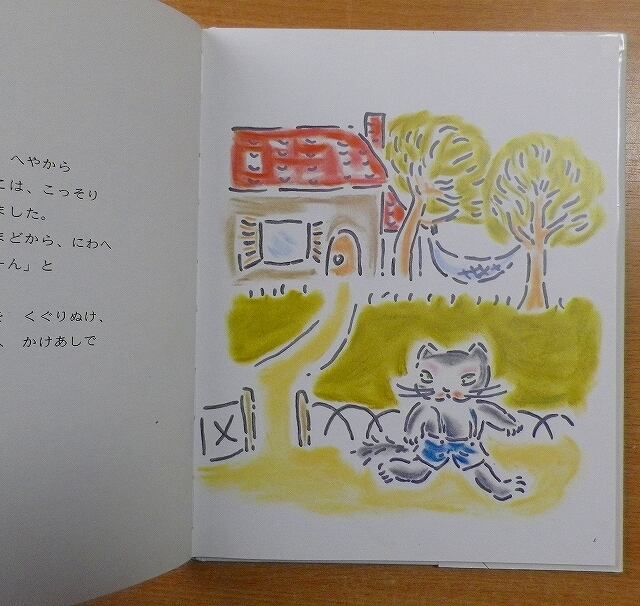 へやから
こは、こっそり
ました。
まどから、にわへ
ーん」と
くぐりぬけ、
かけあしで